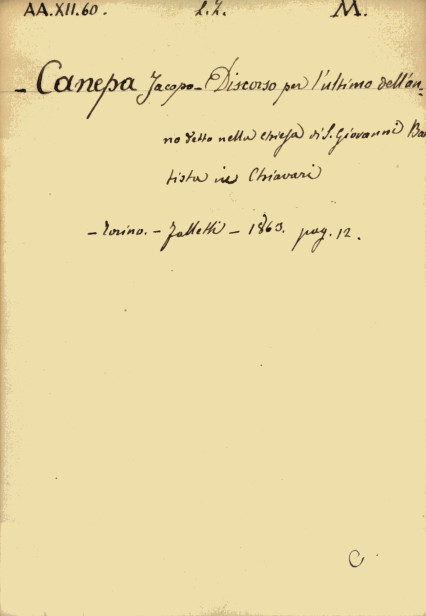 AA.XII.60. L.Z. M.
- Canepa Jacopo - Discorso per l'ultimo dell'an-
no detto nella chiesa di S. Giovanni Bat
tista in Chiavari
- Torino. - Falletti - 1863. pag. 12.
C